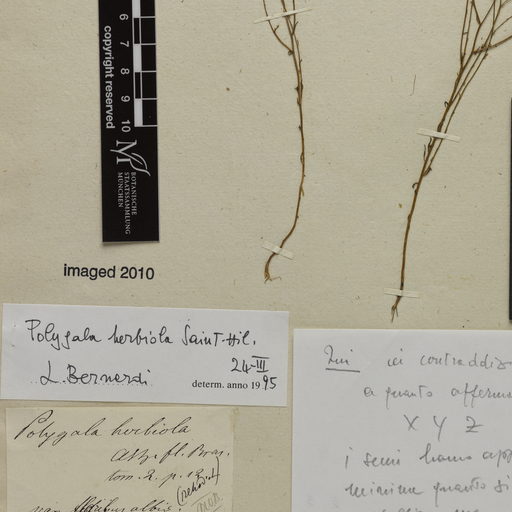 6
7
8
9
10
copyright reserved
BOTANISCHE
STAATSSAMMLUNG
MÜNCHEN
imaged 2010
Polygala herbiola Saint-Hil.
24-III
L. Bernardi determ. anno 1995
Polygala herbiola
ASH. fl. Bras.
tom. 2. p.
var. floribus albis.
Qui ici contraddi
a quanto afferm
X Y Z
i semi hanno app
minime quanto si